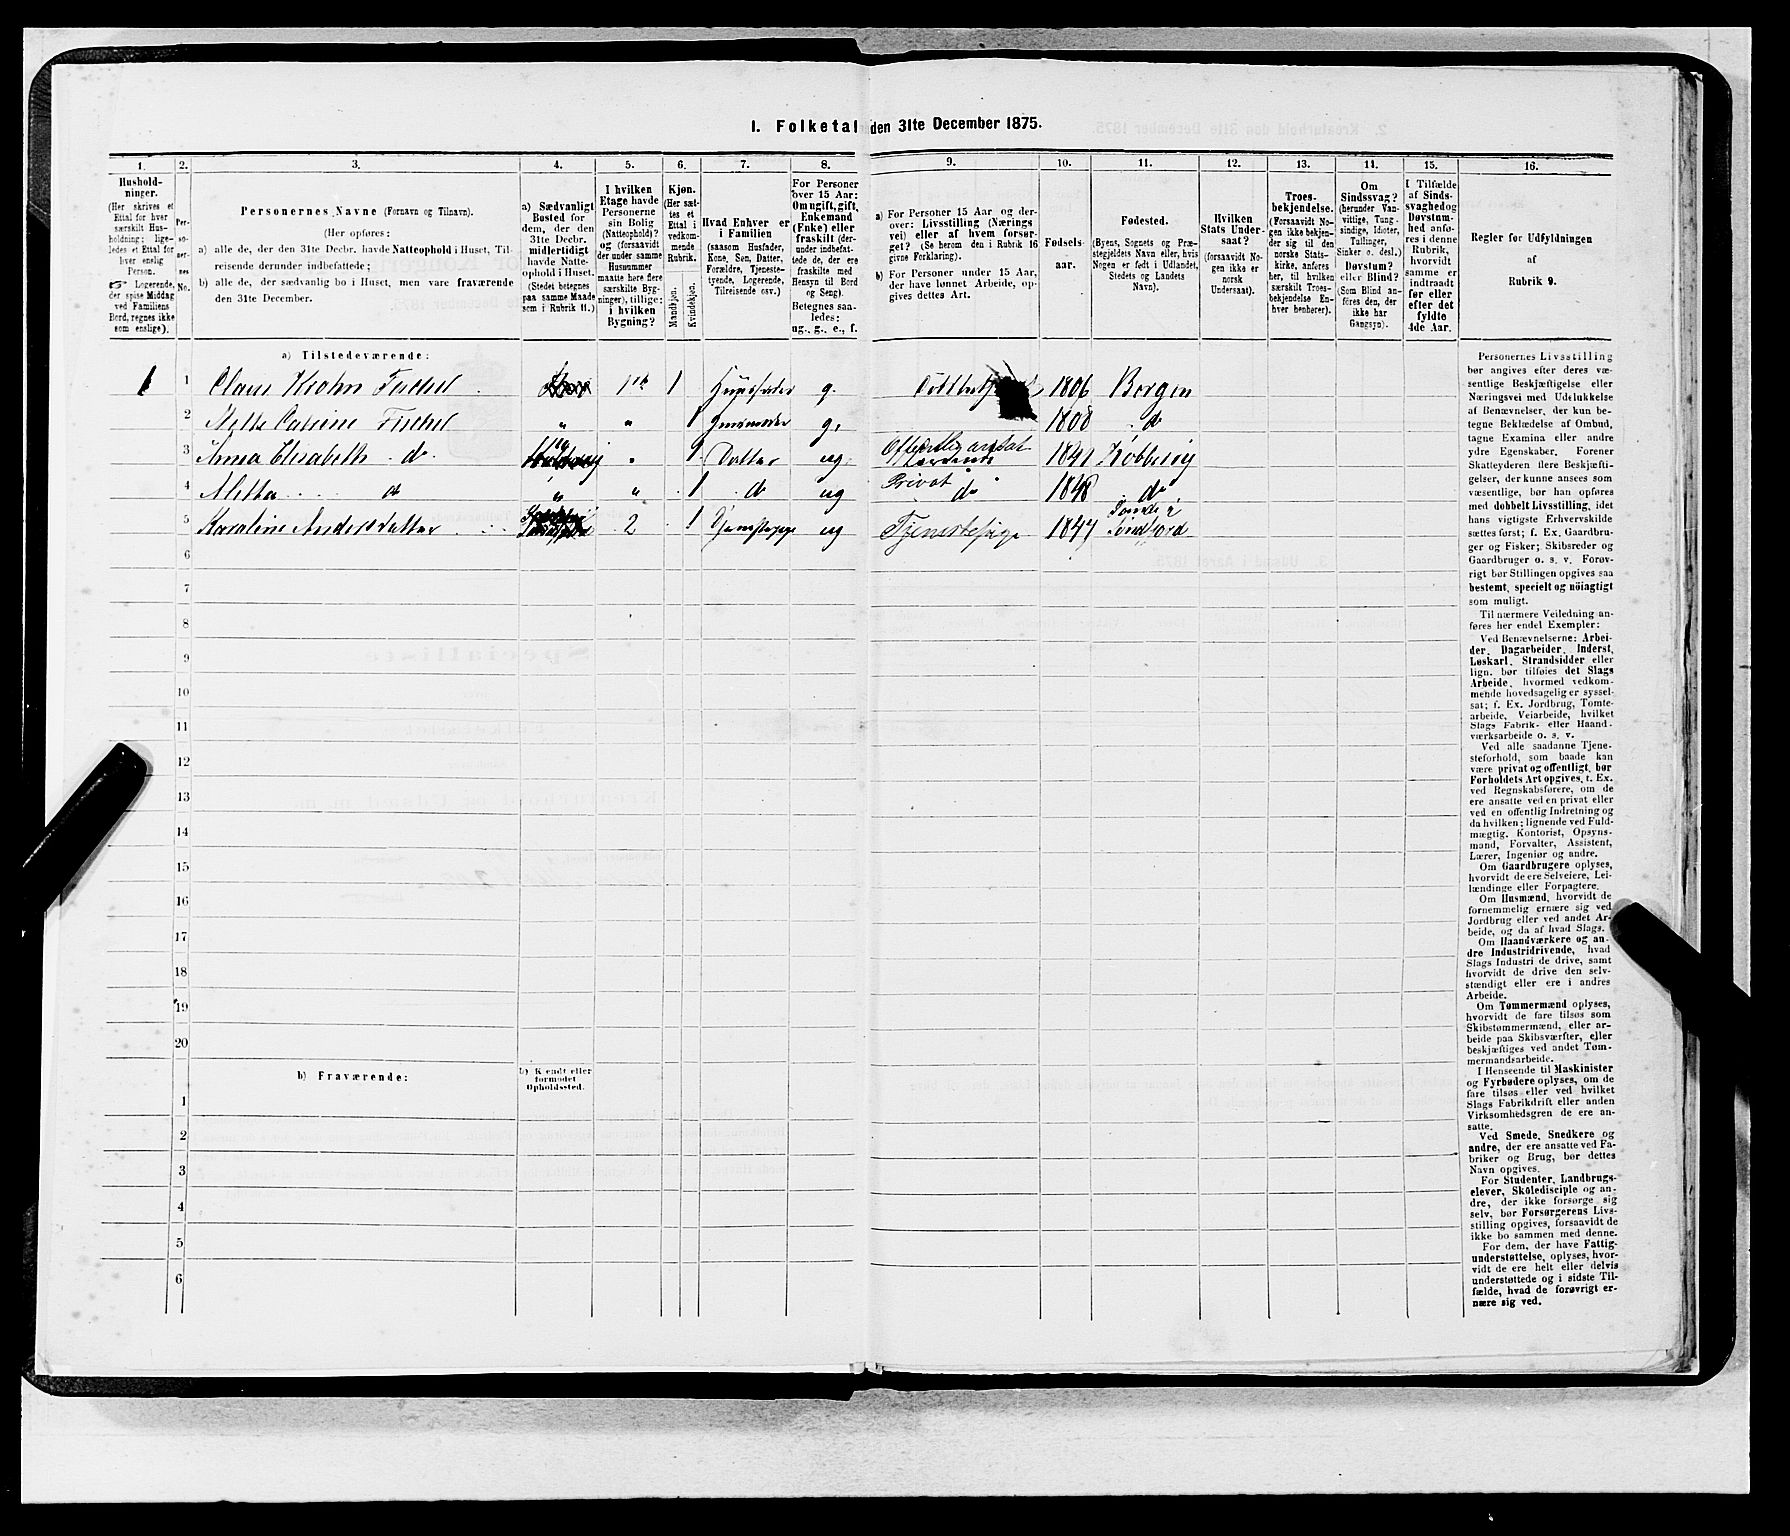 I. Folketal den 31te December 1875.
1. 2. 3. 4. 5. 6. 7. 8. 9. 10. 11. 12. 13. 14. 15. 16.
Hushold-
ninger.
(Her skrives et
Ettal for hver
særskilt Hus-
holdning; lige-
ledes et Ettal for
hver enslig
Person.
☞ Logerende,
der spise Middag
ved Familiens
Bord, regnes ikke
som enslige).
Per-
so-
ner-
nes
No.
Personernes Navne (Fornavn og Tilnavn).
(Her opføres:
a) alle de, der den 31te Decbr. havde Natteophold i Huset, Til-
reisende derunder indbefattede;
b) alle de, der sædvanlig bo i Huset, men vare fraværende
den 31te December.
a) Sædvanligt
Bosted for
dem, der den
31te Decbr.
midlertidigt
havde Natte-
ophold i Huset.
(Stedet betegnes
paa samme Maade
som i Rubrik 11.)
I hvilken
Etage havde
Personerne
sin Bolig
(Natteophold)?
og (forsaavidt
der under samme
Husnummer
maatte høre flere
særskilte Byg-
ninger), tillige:
i hvilken
Bygning?
Kjøn.
(Her sæt-
tes et
Ettal i
vedkom-
mende
Rubrik.
Mandkjøn.
Kvindekjøn.
Hvad Enhver er
i Familien
(saasom Husfader,
Kone, Søn, Datter,
Forældre, Tjeneste-
tyende, Logerende,
Tilreisende osv.)
For Personer
over 15 Aar:
Om ugift, gift,
Enkemand
(Enke) eller
fraskilt (der-
under indbefat-
tede de, der ere
fraskilte med
Hensyn til Bord
og Seng).
Betegnes saa-
ledes:
ug., g., e., f.
a) For Personer 15 Aar og der-
over: Livsstilling (Nærings
vei) eller af hvem forsør-
get? (Se herom den i Rubrik 16
givne Forklaring).
b) For Personer under 15 Aar,
der have lønnet Arbeide, op-
gives dettes Art.
Fødsels-
aar.
Fødested.
(Byens, Sognets og Præ-
stegjeldets Navn eller, hvis
Nogen er født i Udlandet,
Stedets og Landets
Navn).
Hvilken
Stats Under-
saat?
(forsaavidt No-
gen ikke er
norsk
Undersaat).
Troes-
bekjendelse.
(Forsaavidt No-
gen ikke bekjen-
der sig til den
norske Stats-
kirke, anføres
her, til hvilken
særskilt Troes-
bekjendelse En-
hver henhører).
Om
Sindssvag?
(herunder Van-
vittige, Tung-
sindige, Idioter,
Tullinger,
Sinker o. desl.)
Døvstum?
eller Blind?
(Som Blind an-
føres den, der
ikke har
Gangsyn).
I Tilfælde
af Sinds-
svaghed og
Døvstum-
hed anfø-
res i denne
Rubrik,
hvorvidt
samme er
indtraadt
før eller
efter det
fyldte
4de Aar.
Regler for Udfyldningen
af
Rubrik 9.
a) Tilstedeværende:
1 1 Claus Krohn 1 Huusfader g. 1806 Bergen
2 " " 1 Huusmoder g. 1808 d
3 Anna Elisabeth d 1 Datter ug 1841
4 d " " 1 d ug Privat do 1848 do
5 Karoline Andersdatter 2 1 Tjenestepige ug Tjenestepige 1847 Søndfjord
6
7
8
9
10
11
12
13
14
15
16
17
18
19
20
b) Fraværende:
b) Kjendt eller
formodet
Opholdssted.
1
2
3
4
5
6
Personernes Livsstilling
bør angives efter deres væ-
sentlige Beskjæftigelse eller
Næringsvei med Udelukkelse
af Benævnelser, der kun be-
tegne Beklædelse af Ombud,
tagne Examina eller andre
ydre Egenskaber. Forener
Skatteyderen flere Beskjæfti-
gelser, der kunne ansees som
væsentlige, bør han opføres
med dobbelt Livsstilling, idet
hans vigtigste Erhvervskilde
sættes først; f. Ex. Gaardbru-
ger og Fisker; Skibsreder og
Gaardbruger o. s. v. Forøv-
rigt bør Stillingen opgives saa
bestemt, specielt og nöiagtigt
som muligt.
Til nærmere Veiledning an-
føres her endel Exempler:
Ved Benævnelserne: Arbei-
der, Dagarbeider, Inderst,
Løskarl, Strandsidder eller
lign. bør tilføies det Slags
Arbeide, hvormed vedkom-
mende hovedsagelig er syssel-
sat; f. Ex. Jordbrug, Tomte-
arbeide, Veiarbeide, hvilket
Slags Fabrik- eller Haand-
værksarbeide o. s. v.
Ved alle saadanne Tjene-
steforhold, som baade kan
være privat og offentligt, bør
Forholdets Art opgives, t. Ex.
ved Regnskabsførere, om de
ere ansatte ved en privat eller
ved en offentlig Indretning og
da hvilken; lignende ved Fuld-
mægtig, Kontorist, Opsyns-
mand, Forvalter, Assistent,
Lærer, Ingeniør og andre.
Om Gaardbrugere oplyses,
hvorvidt de ere Selveiere, Lei-
lændinge eller Forpagtere.
Om Husmænd, hvorvidt de
fornemmelig ernære sig ved
Jordbrug eller ved andet Ar-
beide, og da af hvad Slags.
Om Haandværkere og an-
dre Industridrivende, hvad
Slags Industri de drive, samt
hvorvidt de drive den selv-
stændigt eller ere i andres
Arbeide.
Om Tømmermænd oplyses,
hvorvidt de fare tilsøs som
Skibstømmermænd, eller ar-
beide paa Skibsværfter, eller
beskjæftiges ved andet Tøm-
mermandsarbeide.
I Henseende til Maskinister
og Fyrbødere oplyses, om de
fare tilsøs eller ved hvilket
Slags Fabrikdrift eller anden
Virksomhedsgren de ere an-
satte.
Ved Smede, Snedkere og
andre, der ere ansatte ved Fa-
briker og Brug, bør dettes
Navn opgives.
For Studenter, Landbrugs-
elever, Skoledisciple og an-
dre, der ikke forsørge sig
selv, bør Forsørgerens Livs-
stilling opgives, forsaavidt de
ikke bo sammen med denne.
For dem, der have Fattig-
understøttelse, oplyses, hvor-
vidt de ere helt eller delvis
understøttede og i sidste Til-
fælde, hvad de forøvrigt er-
nære sig ved.